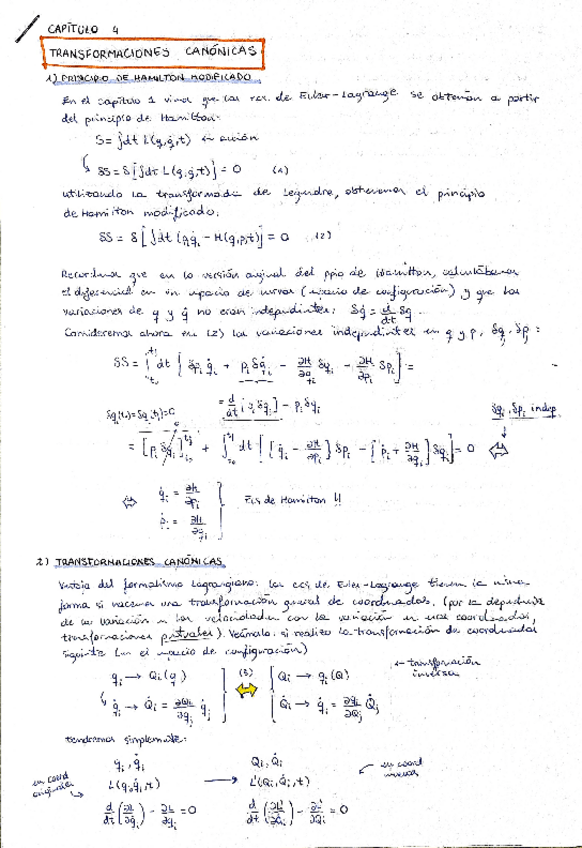 CAPÍTULO 4
TRANSFORMACIONES CANÓNICAS
1) PRINCIPIO DE HAMILTON MODIFICADO
En el capítulo 1 vimos que las ecs. de Euler-Lagrange se obtenían a partir
del principio de Hamilton:
S = ∫dt L(q,q̇,t) ← acción
↳ δS = δ[∫dt L(q,q̇,t)] = 0 (1)
utilizando la transformada de Legendre, obtenemos el principio
de Hamilton modificado:
δS = δ[∫dt (pᵢq̇ᵢ - H(q,p,t)] = 0 (2)
Recordemos que en la versión original del ppio de Hamilton, calculábamos
el diferencial en un espacio de curvas (espacio de configuración) y que las
variaciones de q y q̇ no eran independientes: δq̇ = d/dt δq.
Consideremos ahora en (2) las variaciones independientes en q y p, δq, δp:
δS = ∫_{t₀}^{t₁} dt [δpᵢ q̇ᵢ + pᵢδq̇ᵢ - ∂H/∂qᵢ δqᵢ - ∂H/∂pᵢ δpᵢ] =
= d/dt [pᵢδqᵢ] - ṗᵢδqᵢ
δq(t₀)=δq(t₁)=0
δqᵢ, δpᵢ indep
= [pᵢ δqᵢ]_{t₀}^{t₁} + ∫_{t₀}^{t₁} dt [[q̇ᵢ - ∂H/∂pᵢ] δpᵢ - [ṗᵢ + ∂H/∂qᵢ] δqᵢ] = 0 ⇔
⇔ q̇ᵢ = ∂H/∂pᵢ
ṗᵢ = ∂H/∂qᵢ
Ecs de Hamilton !!
2) TRANSFORMACIONES CANÓNICAS
Ventaja del formalismo Lagrangiano: las ecs de Euler-Lagrange tienen la misma
forma si hacemos una transformación general de coordenadas. (por la dependencia
de la variación en las velocidades con la variación en las coordenadas,
transformaciones puntuales). Veámoslo: si realizo la transformación de coordenadas
siguiente (en el espacio de configuración)
qᵢ → Qᵢ(q) (3) Qᵢ → qᵢ(Q) ← transformación inversa
↳ q̇ᵢ → Q̇ᵢ = ∂Qᵢ/∂qⱼ q̇ⱼ ⇔ Q̇ᵢ → q̇ᵢ = ∂qᵢ/∂Qⱼ Q̇ⱼ
tendremos simplemente:
qᵢ, q̇ᵢ Qᵢ, Q̇ᵢ
en coord originales L(q,q̇,t) → L'(Qᵢ,Q̇ᵢ,t) ← en coord
d/dt(∂L/∂q̇ᵢ) - ∂L/∂qᵢ = 0 d/dt(∂L'/∂Q̇ᵢ) - ∂L'/∂Qᵢ = 0